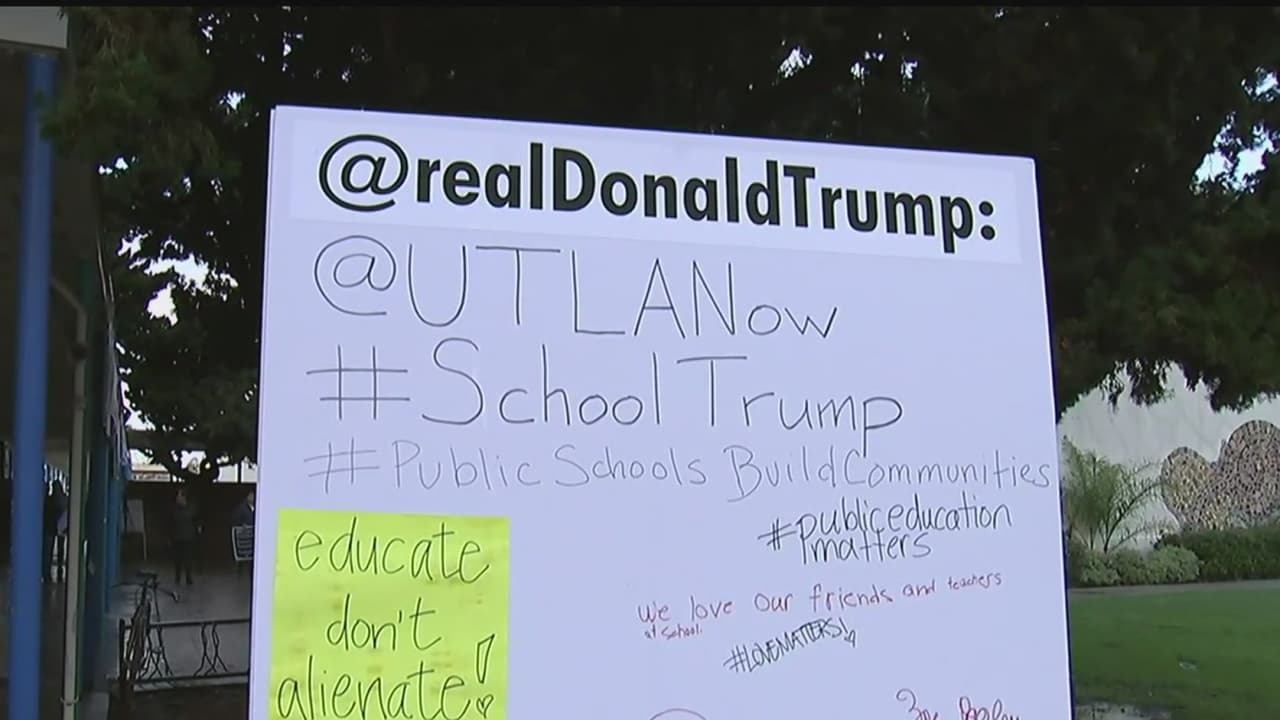 @realDonaldTrump:
@UTLANow
#SchoolTrump
#Public Schools Build Communities
#publiceducation
matters
educate
don't
alienate!
we love our friends and teachers
at school.
#LOVEMATTERS!